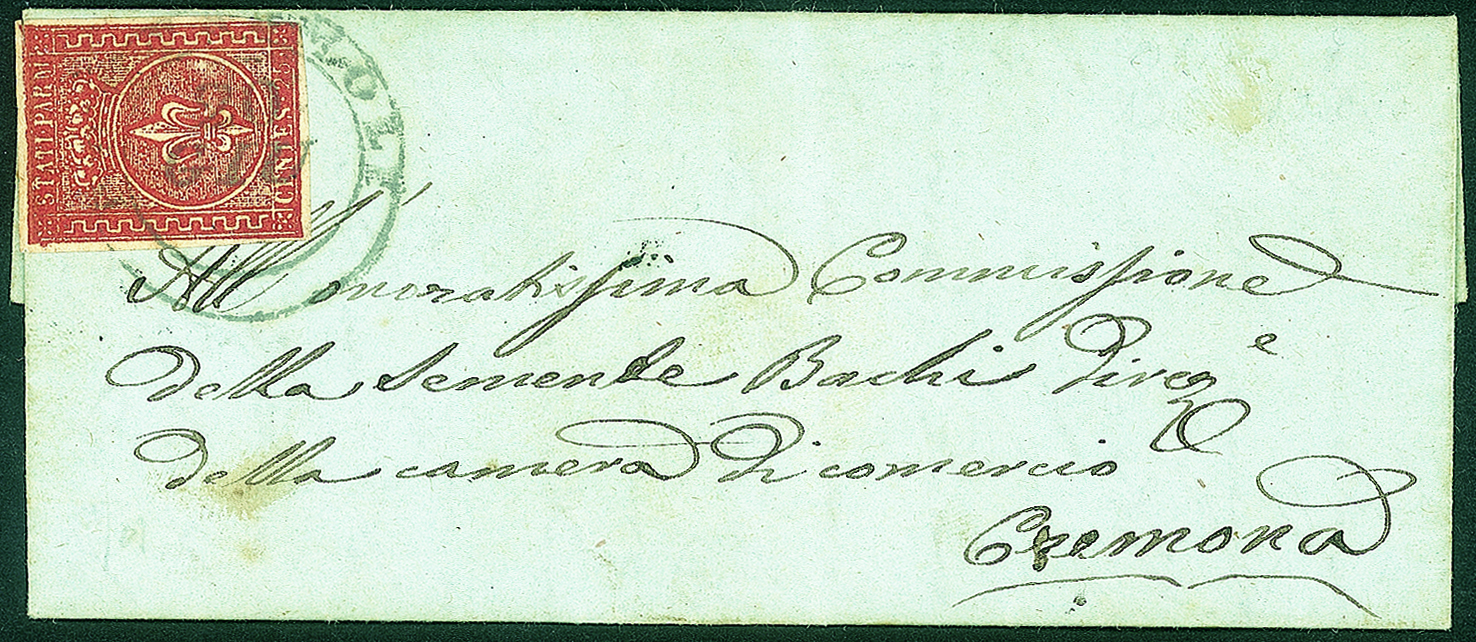 STATI PARM.
CENTES. 15
MOLI
All' onoratissima Commissione
della Semente Bachi Direz.e
della camera di comercio
Cremona